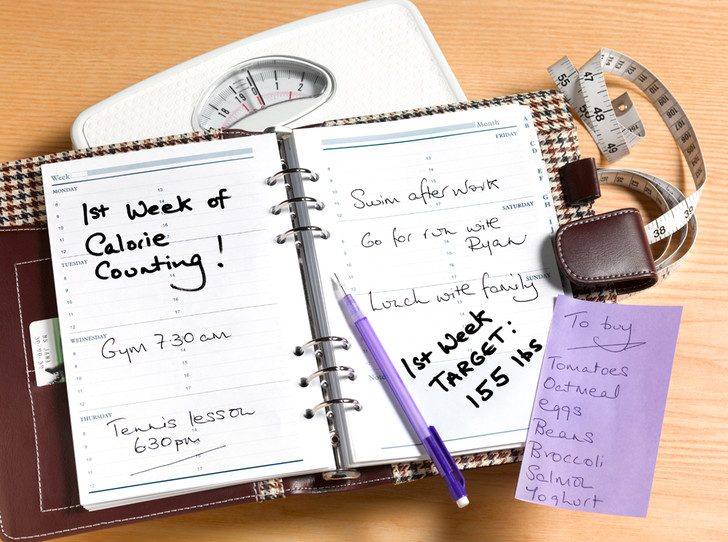 Week
MONDAY
1st Week of
Calorie
Counting!
TUESDAY
WEDNESDAY
Gym 7.30 am
THURSDAY
Tennis lesson
630pm
Month
FRIDAY
Swim after work
SATURDAY
Go for run with
Ryan
SUNDAY
Lunch with family
Notes
1st Week
TARGET:
155 lbs
A
B
C
D
E
F
G
H
To buy
Tomatoes
Oatmeal
eggs
Beans
Broccoli
Salmon
Yoghurt
18
19
0
1
2
55
47
48
49
38
39